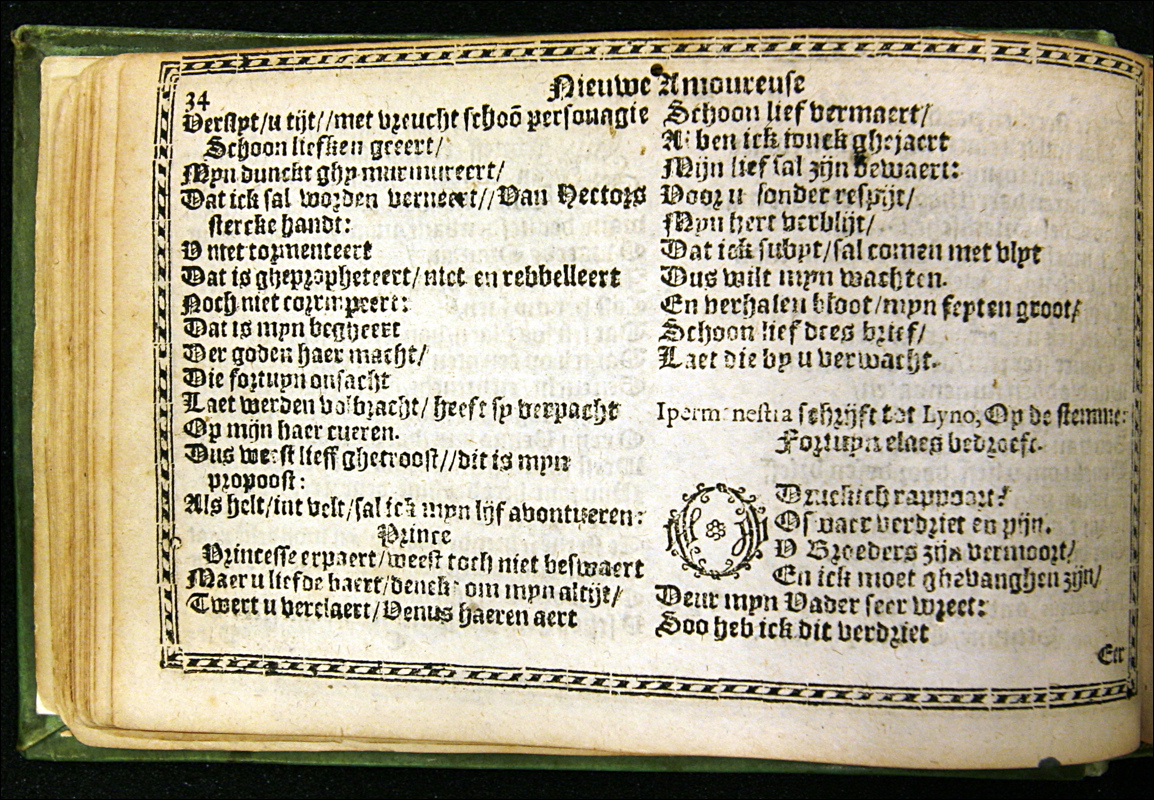 34
Nieuwe Amoureuse
Verslijt/u tijt//met vreucht schoõ personagie
Schoon liefken geeert/
Myn dunckt ghy murmureert/
Dat ick sal worden verneert//Van Hectors
stercke handt:
V niet tormenteert
Dat is ghepropheteert/niet en rebbelleert
Noch niet corrmpeert:
Dat is myn begheert
Der goden haer macht/
Die fortuyn onsacht
Laet werden volbracht/heeft sy verpacht
Op mijn haer cueren.
Dus weest lieff ghetroost//dit is myn
propoost:
Als helt/int velt/sal ick myn lijf avontueren:
Prince
Princesse erpaert/weest toch niet beswaert
Maer u liefde baert/denckt om myn altijt/
Twert u verclaert/Venus haeren aert
Schoon lief vermaert/
Al ben ick jonck ghejaert
Mijn lief sal zijn bewaert:
Voor u sonder respijt/
Myn hert verblijt/
Dat ick subyt/sal comen met vlyt
Dus wilt myn wachten.
En verhalen bloot/myn feyten groot/
Schoon lief dees brief/
Laet die by u verwacht.
Ipermenestra schrijft tot Lyno, Op de stemme:
Fortuyn elaes bedroeft.
Druckich rappoort!
Of vaer verdriet en pijn.
V Broeders zijn vermoort/
En ick moet ghevanghen zijn/
Deur myn Vader seer wreet:
Soo heb ick dit verdriet
Eer